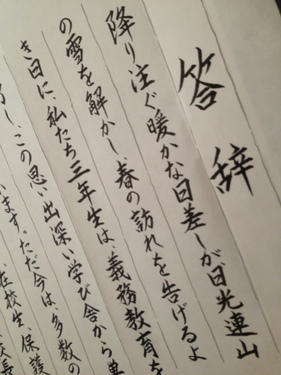 答辞
降り注ぐ暖かな日差しが、日光連山
の雪を解かし、春の訪れを告げるよ
き日に、私たち三年生は、義務教育を
し、この思い出深い学び舎から
います。ただ今は、多数の
在校生、保護